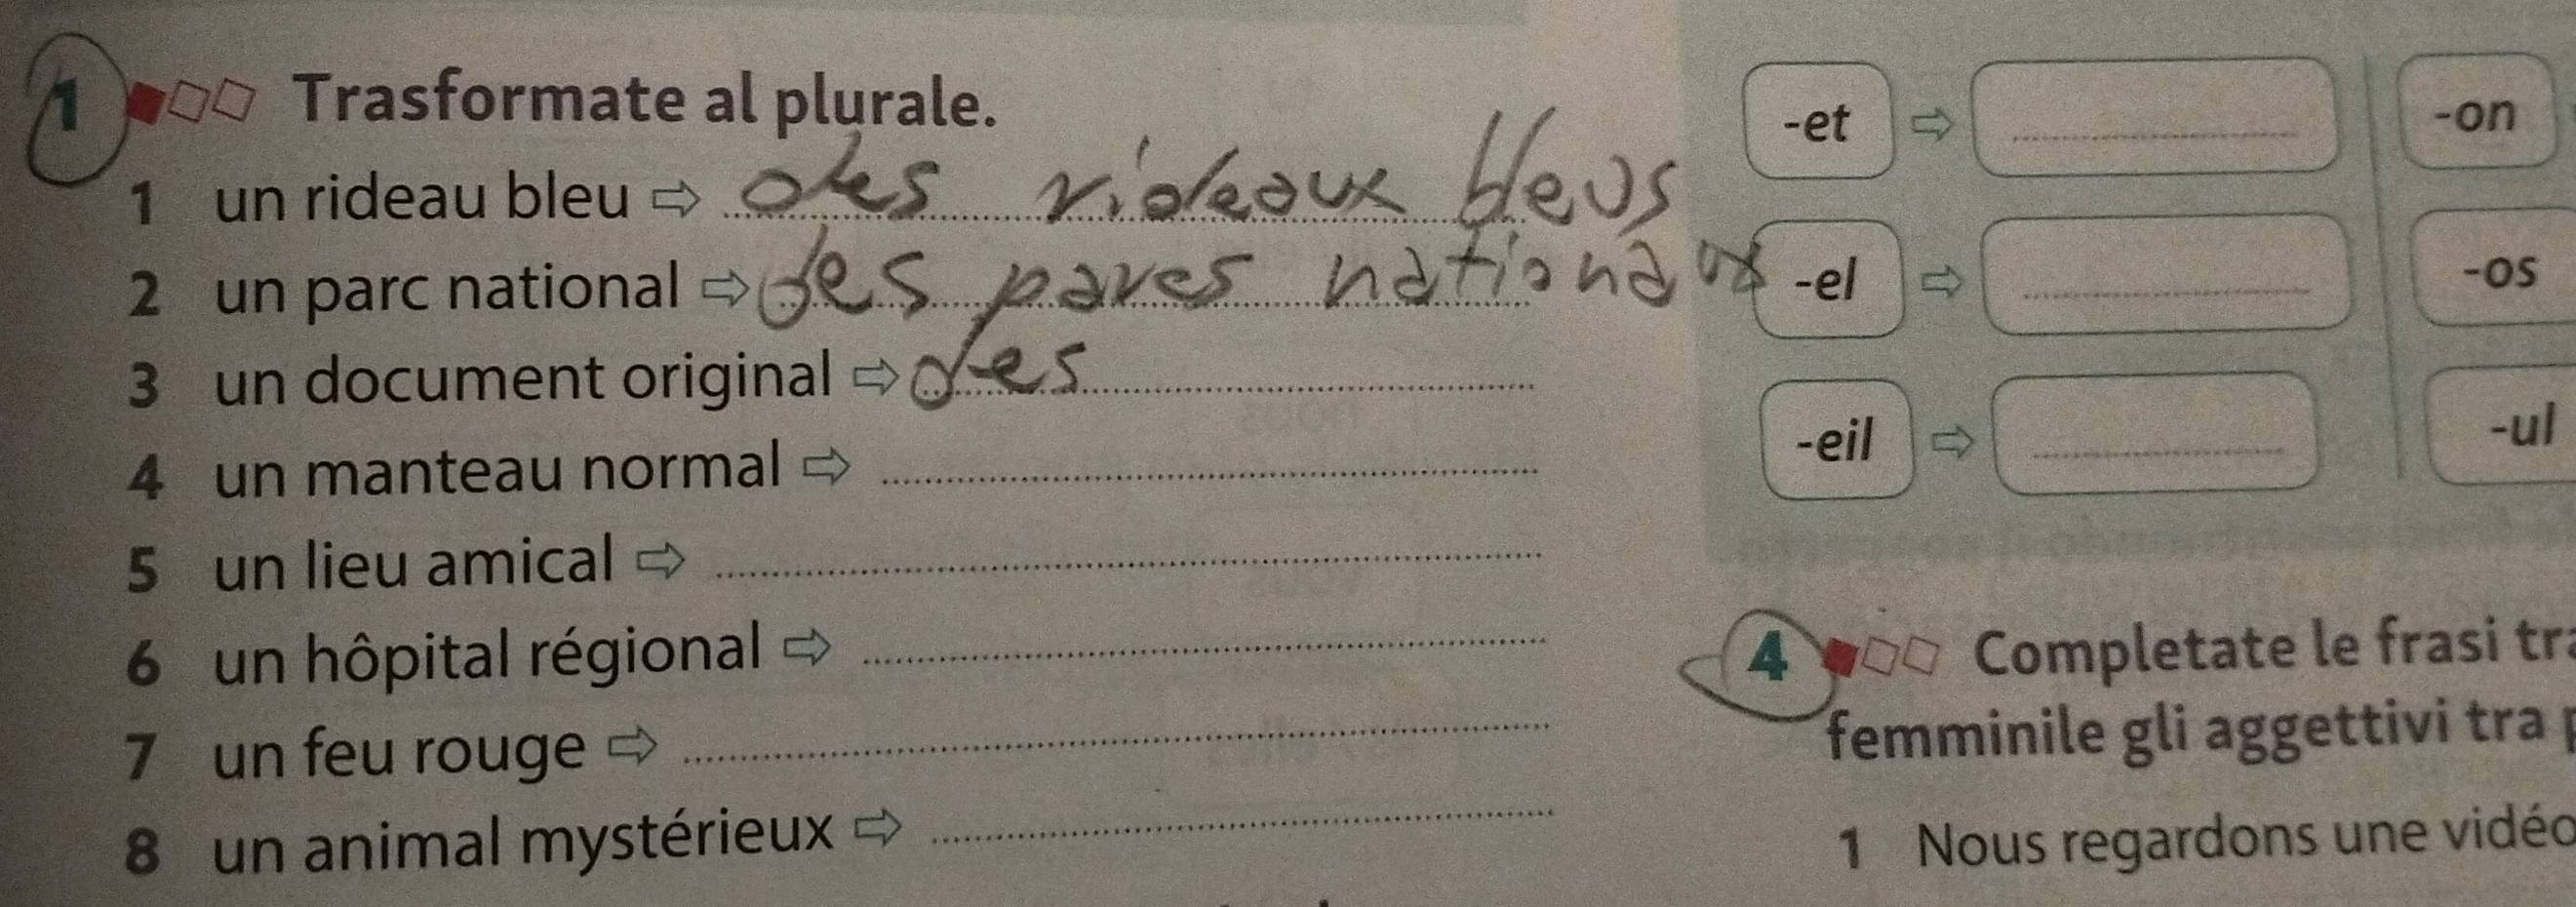 1 Trasformate al plurale.
1 un rideau bleu ⇨ des rideaux bleus
2 un parc national ⇨ des parcs nationaux
3 un document original ⇨ des
4 un manteau normal ⇨
5 un lieu amical ⇨
6 un hôpital régional ⇨
7 un feu rouge ⇨
8 un animal mystérieux ⇨
-et ⇨
-el ⇨
-eil ⇨
-on
-os
-ul
4 Completate le frasi tra
femminile gli aggettivi tra p
1 Nous regardons une vidéo